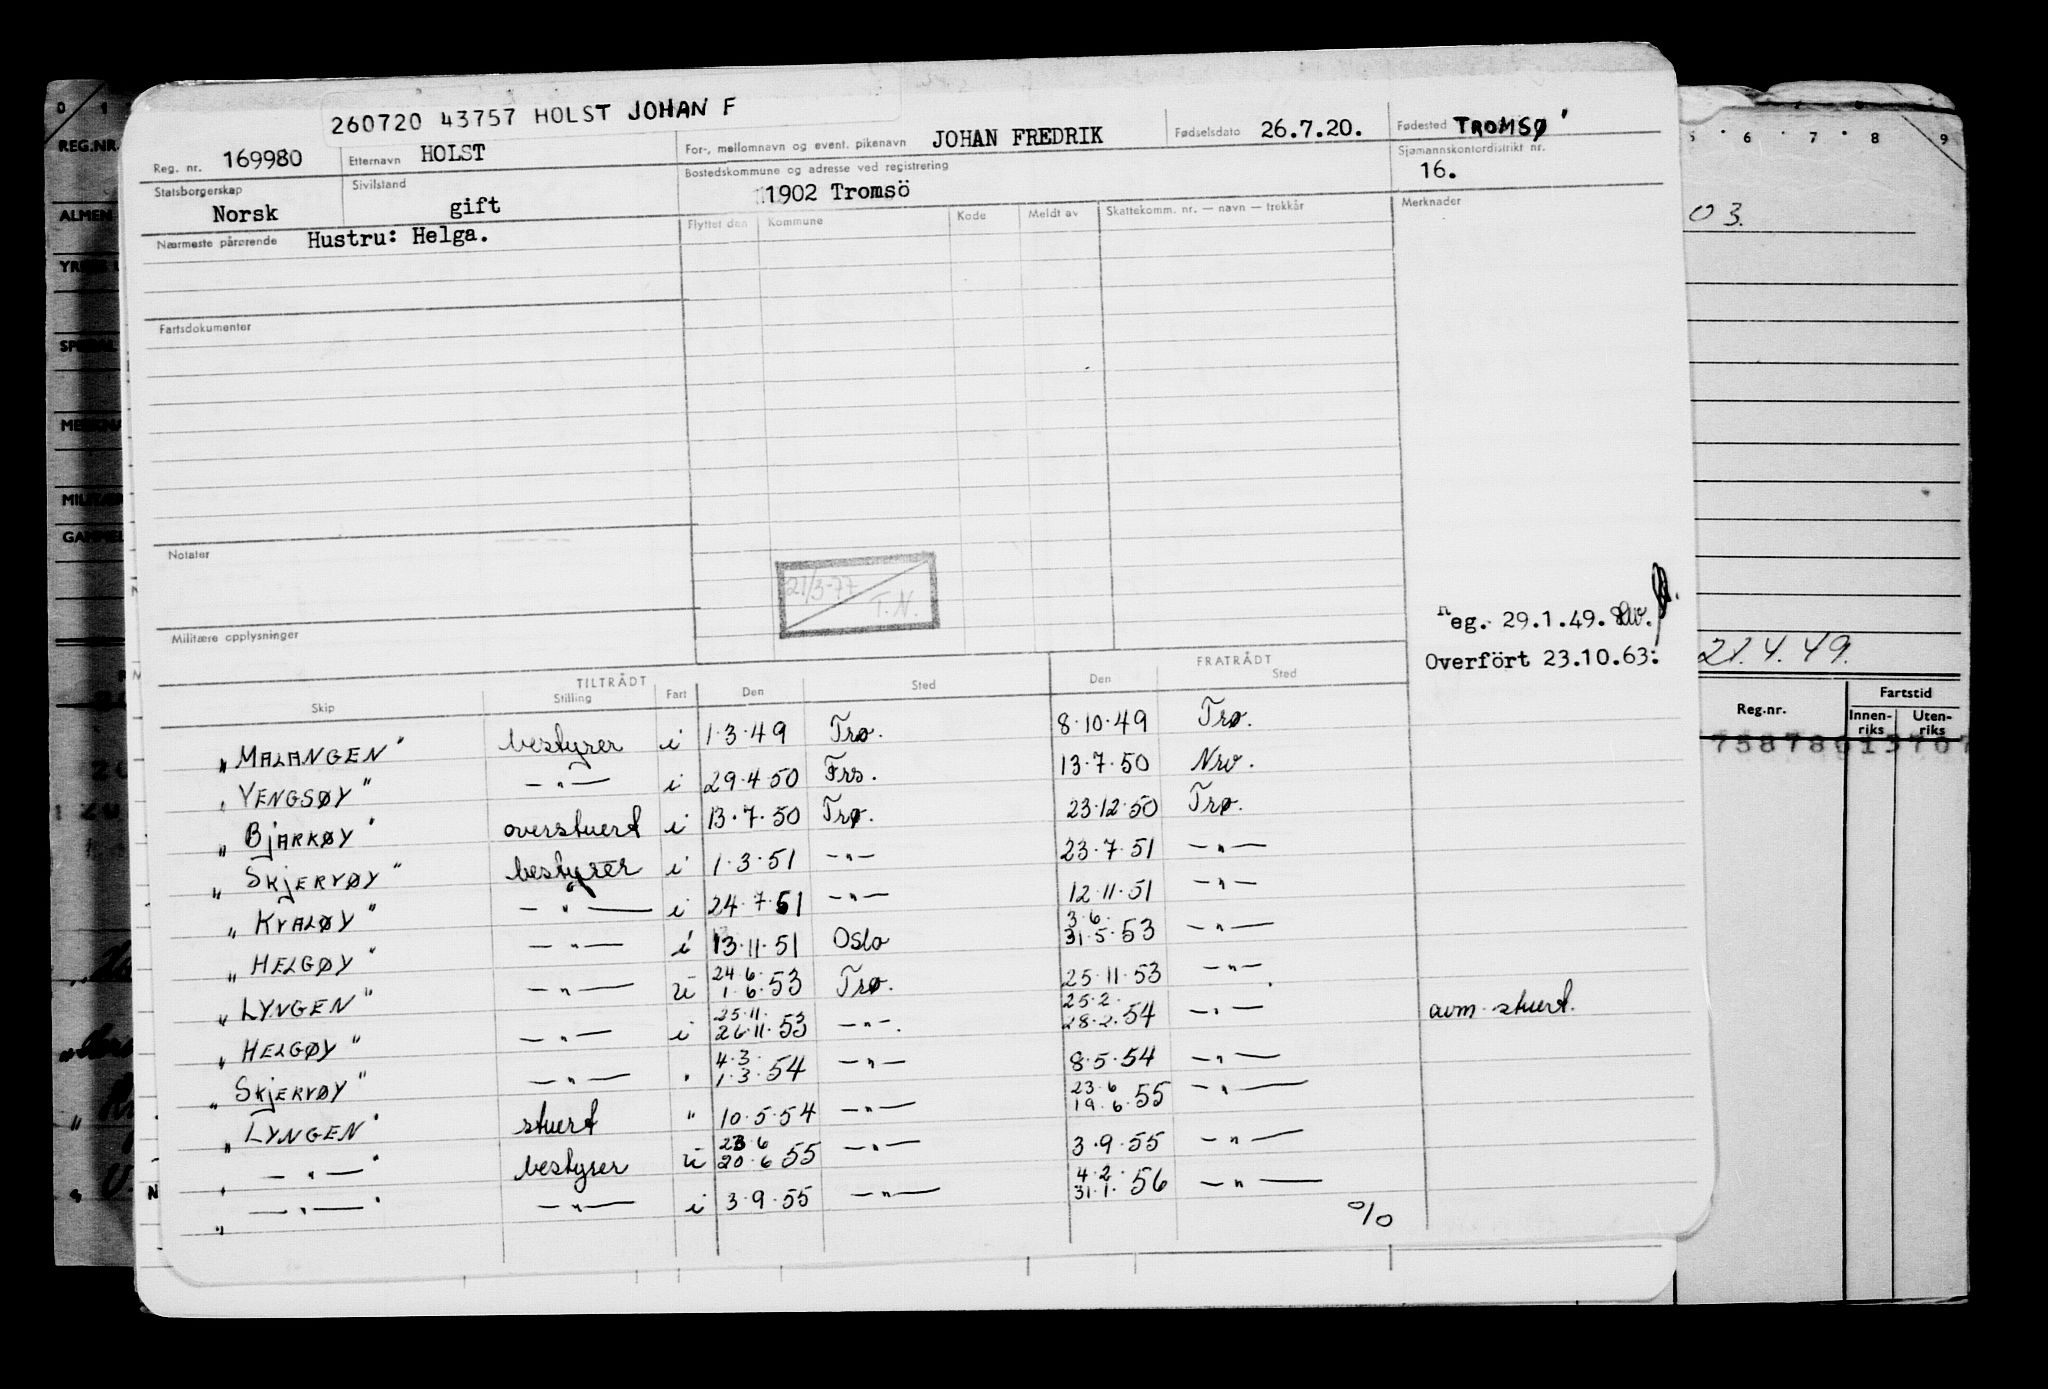 260720 43757 HOLST JOHAN F
Reg. nr. 169980 Etternavn HOLST For-, mellomnavn og event. pikenavn JOHAN FREDRIK Fødselsdato 26.7.20. Fødested TROMSØ
Statsborgerskap Norsk Sivilstand gift Bostedskommune og adresse ved registrering 1902 Tromsö Sjømannskontordistrikt nr. 16.
Nærmeste pårørende Hustru: Helga. Flyttet den Kommune Kode Meldt av Skattekomm. nr. — navn — trekkår Merknader
Fartsdokumenter
Notater
21/3-77
T.N.
Militære opplysninger
Reg. 29.1.49.
Overfört 23.10.63:
TILTRÅDT FRATRÅDT
Skip Stilling Fart Den Sted Den Sted
" MALANGEN " bestyrer i 1.3.49 Trø. 8.10.49 Trø.
" VENGSØY " —"— i 29.4.50 Trø. 13.7.50 Nrv.
" BJARKØY " overstuert i 13.7.50 Trø. 23.12.50 Trø.
" SKJERVØY " bestyrer i 1.3.51 —"— 23.7.51 —"—
" KVALØY " —"— i 24.7.51 —"— 12.11.51 —"—
" HELGØY " —"— i 13.11.51 Oslo 3.6. 31.5.53 —"—
" LYNGEN " —"— u 24.6. 1.6.53 Trø. 25.11.53 —"—
" HELGØY " —"— i 25.11. 26.11.53 —"—. 25.2. 28.2.54 —"— avm. stuert.
" SKJERVØY " —"— " 4.3. 1.3.54 —"— 8.5.54 —"—
" LYNGEN " stuert " 10.5.54 —"— 23.6 19.6.55 —"—
" —"— " bestyrer u 23.6 20.6.55 —"— 3.9.55 —"—
" —"— " —"— i 3.9.55 —"— 4.2. 31.1.56 —"—
%
0 1
REG.NR.
ALMEN
MILITÆR
GAMMEL
N
5 6 7 8 9
03.
21.4.49.
Reg.nr. Fartstid
Innen-riks Uten-riks